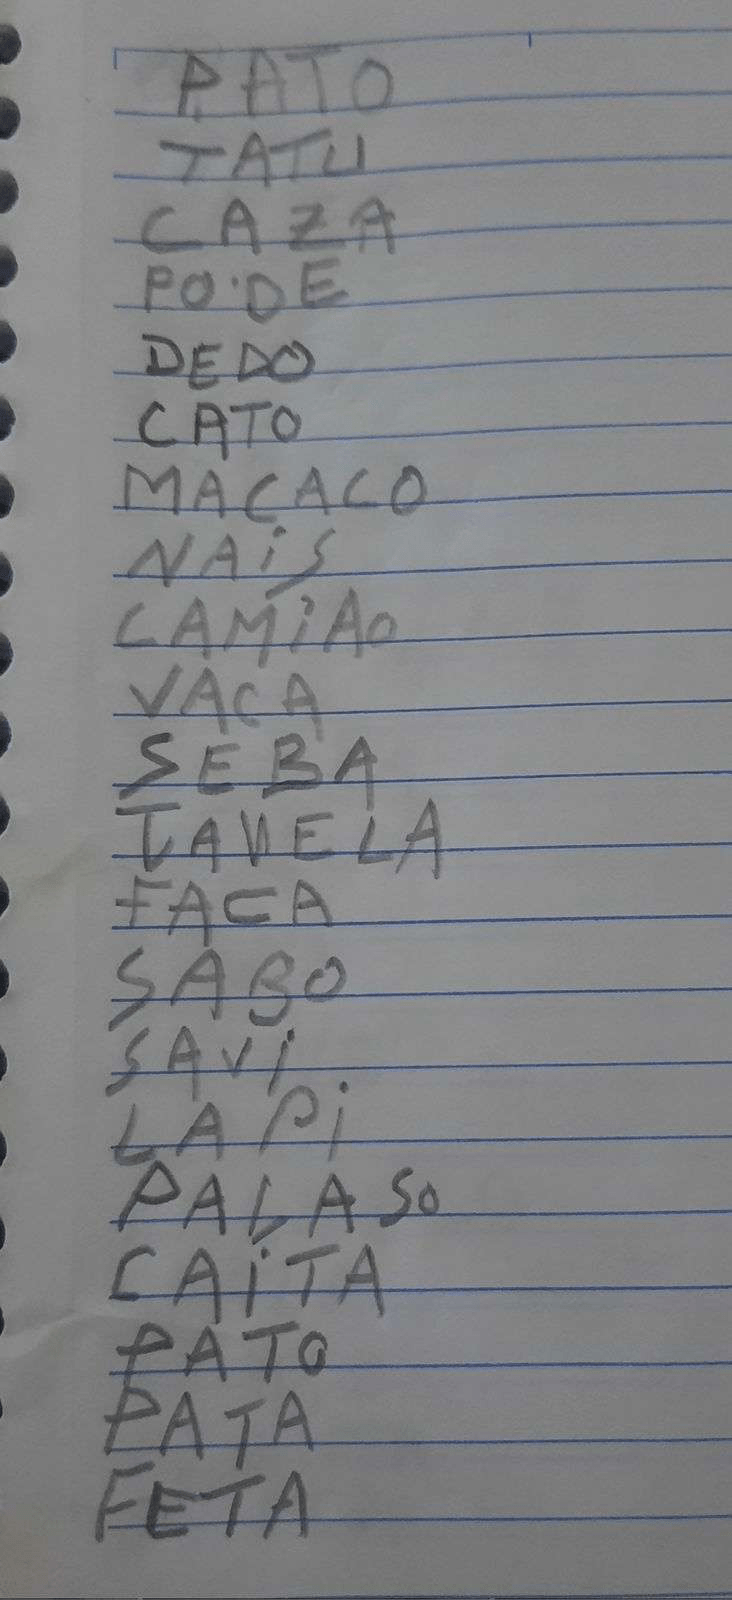 PATO
TATU
CAZA
PO.DE
DEDO
CATO
MACACO
NAIS
CAMIAO
VACA
SEBA
TAVELA
FACA
SABO
SAVI
LAPI
PALASO
CAITA
PATO
PATA
FETA